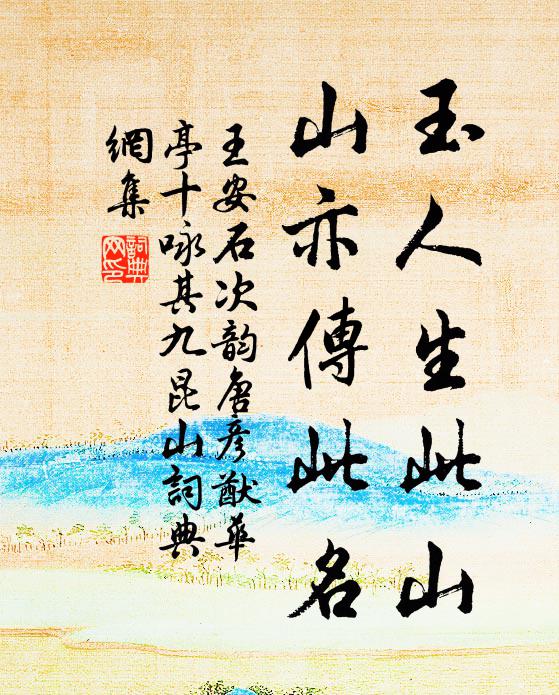 玉人生此山
山亦傳此名
王安石次韵唐彦猷華
亭十咏其九昆山詞典
網集
詞典
网印